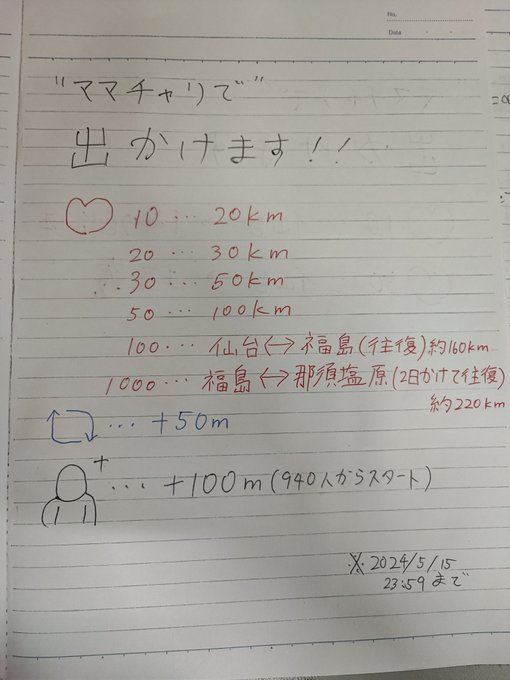 No.
Date
"ママチャリで"
出かけます!!
♡ 10 … 20km
20 … 30km
30 … 50km
50 … 100km
100 … 仙台↔福島(往復)約160km
1000 … 福島↔那須塩原(2日かけて往復)
約220km
… +50m
+ … +100m(940人からスタート)
※ 2024/5/15
23:59まで